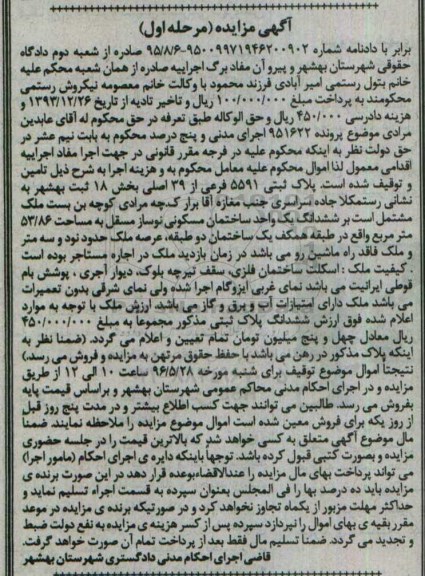 آگهی مزایده (مرحله اول)
برابر با دادنامه شماره ۹۵۰۰۹۹۷۱۹۴۶۲۰۰۹۰۲-۹۵/۸/۶ صادره از شعبه دوم دادگاه
حقوقی شهرستان بهشهر و پیرو آن مفاد برگ اجراییه صادره از همان شعبه محکم علیه
خانم بتول رستمی امیر آبادی فرزند محمود با وکالت خانم معصومه نیکروش رستمی
محکومند به پرداخت مبلغ ۱۰۰/۰۰۰/۰۰۰ ریال و تاخیر تادیه از تاریخ ۱۳۹۳/۱۲/۲۶ و
هزینه دادرسی ۴۵۰/۰۰۰ ریال و حق الوکاله طبق تعرفه در حق محکوم له آقای عابدین
مرادی موضوع پرونده ۹۵۱۶۲۲ اجرای مدنی و پنج درصد محکوم به بابت نیم عشر در
حق دولت نظر به اینکه محکوم علیه در فرجه مقرر قانونی در جهت اجرا مفاد اجراییه
اقدامی معمول لذا اموال محکوم علیه معامل محکوم به و هزینه اجرا به شرح ذیل تأمین
و توقیف شده است. پلاک ثبتی ۵۵۹۱ فرعی از ۳۹ اصلی بخش ۱۸ ثبت بهشهر به
نشانی رستمکلا جاده سراسری جنب مغازه آقا براز ک.چه مرادی کوچه بن بست ملک
مشتمل است بر ششدانگ یک واحد ساختمان مسکونی نوساز مسقل به مساحت ۵۳/۸۶
متر مربع واقع در طبقه همکف یک ساختمان دو طبقه، عرصه ملک حدود نود و سه متر
و ملک فاقد راه ماشین رو می باشد در زمان بازدید ملک در اجاره مستاجر بوده است
. کیفیت ملک : اسکلت ساختمان فلزی، سقف تیرچه بلوک، دیوار آجری ، پوشش بام
قوطی ایرانیت می باشد نمای غربی ایزوگام اجرا شده ولی نمای شرقی بدون تعمیرات
می باشد ملک دارای امتیازات آب و برق و گاز می باشد. ارزش ملک با توجه به موارد
اعلام شده فوق ارزش ششدانگ پلاک ثبتی مذکور مجموعا به مبلغ ۴۵۰/۰۰۰/۰۰۰
ریال معادل چهل و پنج میلیون تومان تمام تعیین و اعلام می گردد. (ضمنا نظر به
اینکه پلاک مذکور در رهن می باشد با حفظ حقوق مرتهن به مزایده و فروش می رسد.)
نتیجتاً اموال موضوع توقیف برای شنبه مورخه ۹۶/۵/۲۸ ساعت ۱۰ الی ۱۲ از طریق
مزایده و در اجرای احکام مدنی محاکم عمومی شهرستان بهشهر و براساس قیمت پایه
بفروش می رسد. طالبین می توانند جهت کسب اطلاع بیشتر و در مدت پنج روز قبل
از روز یکه برای فروش معین شده است اموال موضوع مزایده را ملاحظه نمایند. ضمنا
مال موضوع آگهی متعلق به کسی خواهد شد که بالاترین قیمت را در جلسه حضوری
مزایده و بصورت کتبی قبول کرده باشد. توجها باینکه دایره ی اجرای احکام (مامور اجرا)
می تواند پرداخت بهای مال مزایده را عندالاقضاءبوعده قرار دهد در این صورت برنده ی
مزایده باید ده درصد بها را فی المجلس بعنوان سپرده به قسمت اجراء تسلیم نماید و
حداکثر مهلت مزبور از یکماه تجاوز نخواهد کرد و در صورتیکه برنده ی مزایده در موعد
مقرر بقیه ی بهای اموال را نپردازد سپرده پس از کسر هزینه ی مزایده به نفع دولت ضبط
و تجدید می گردد. ضمنا تسلیم مال فقط بعد از پرداخت تمام آن صورت خواهد گرفت.
قاضی اجرای احکام مدنی دادگستری شهرستان بهشهر